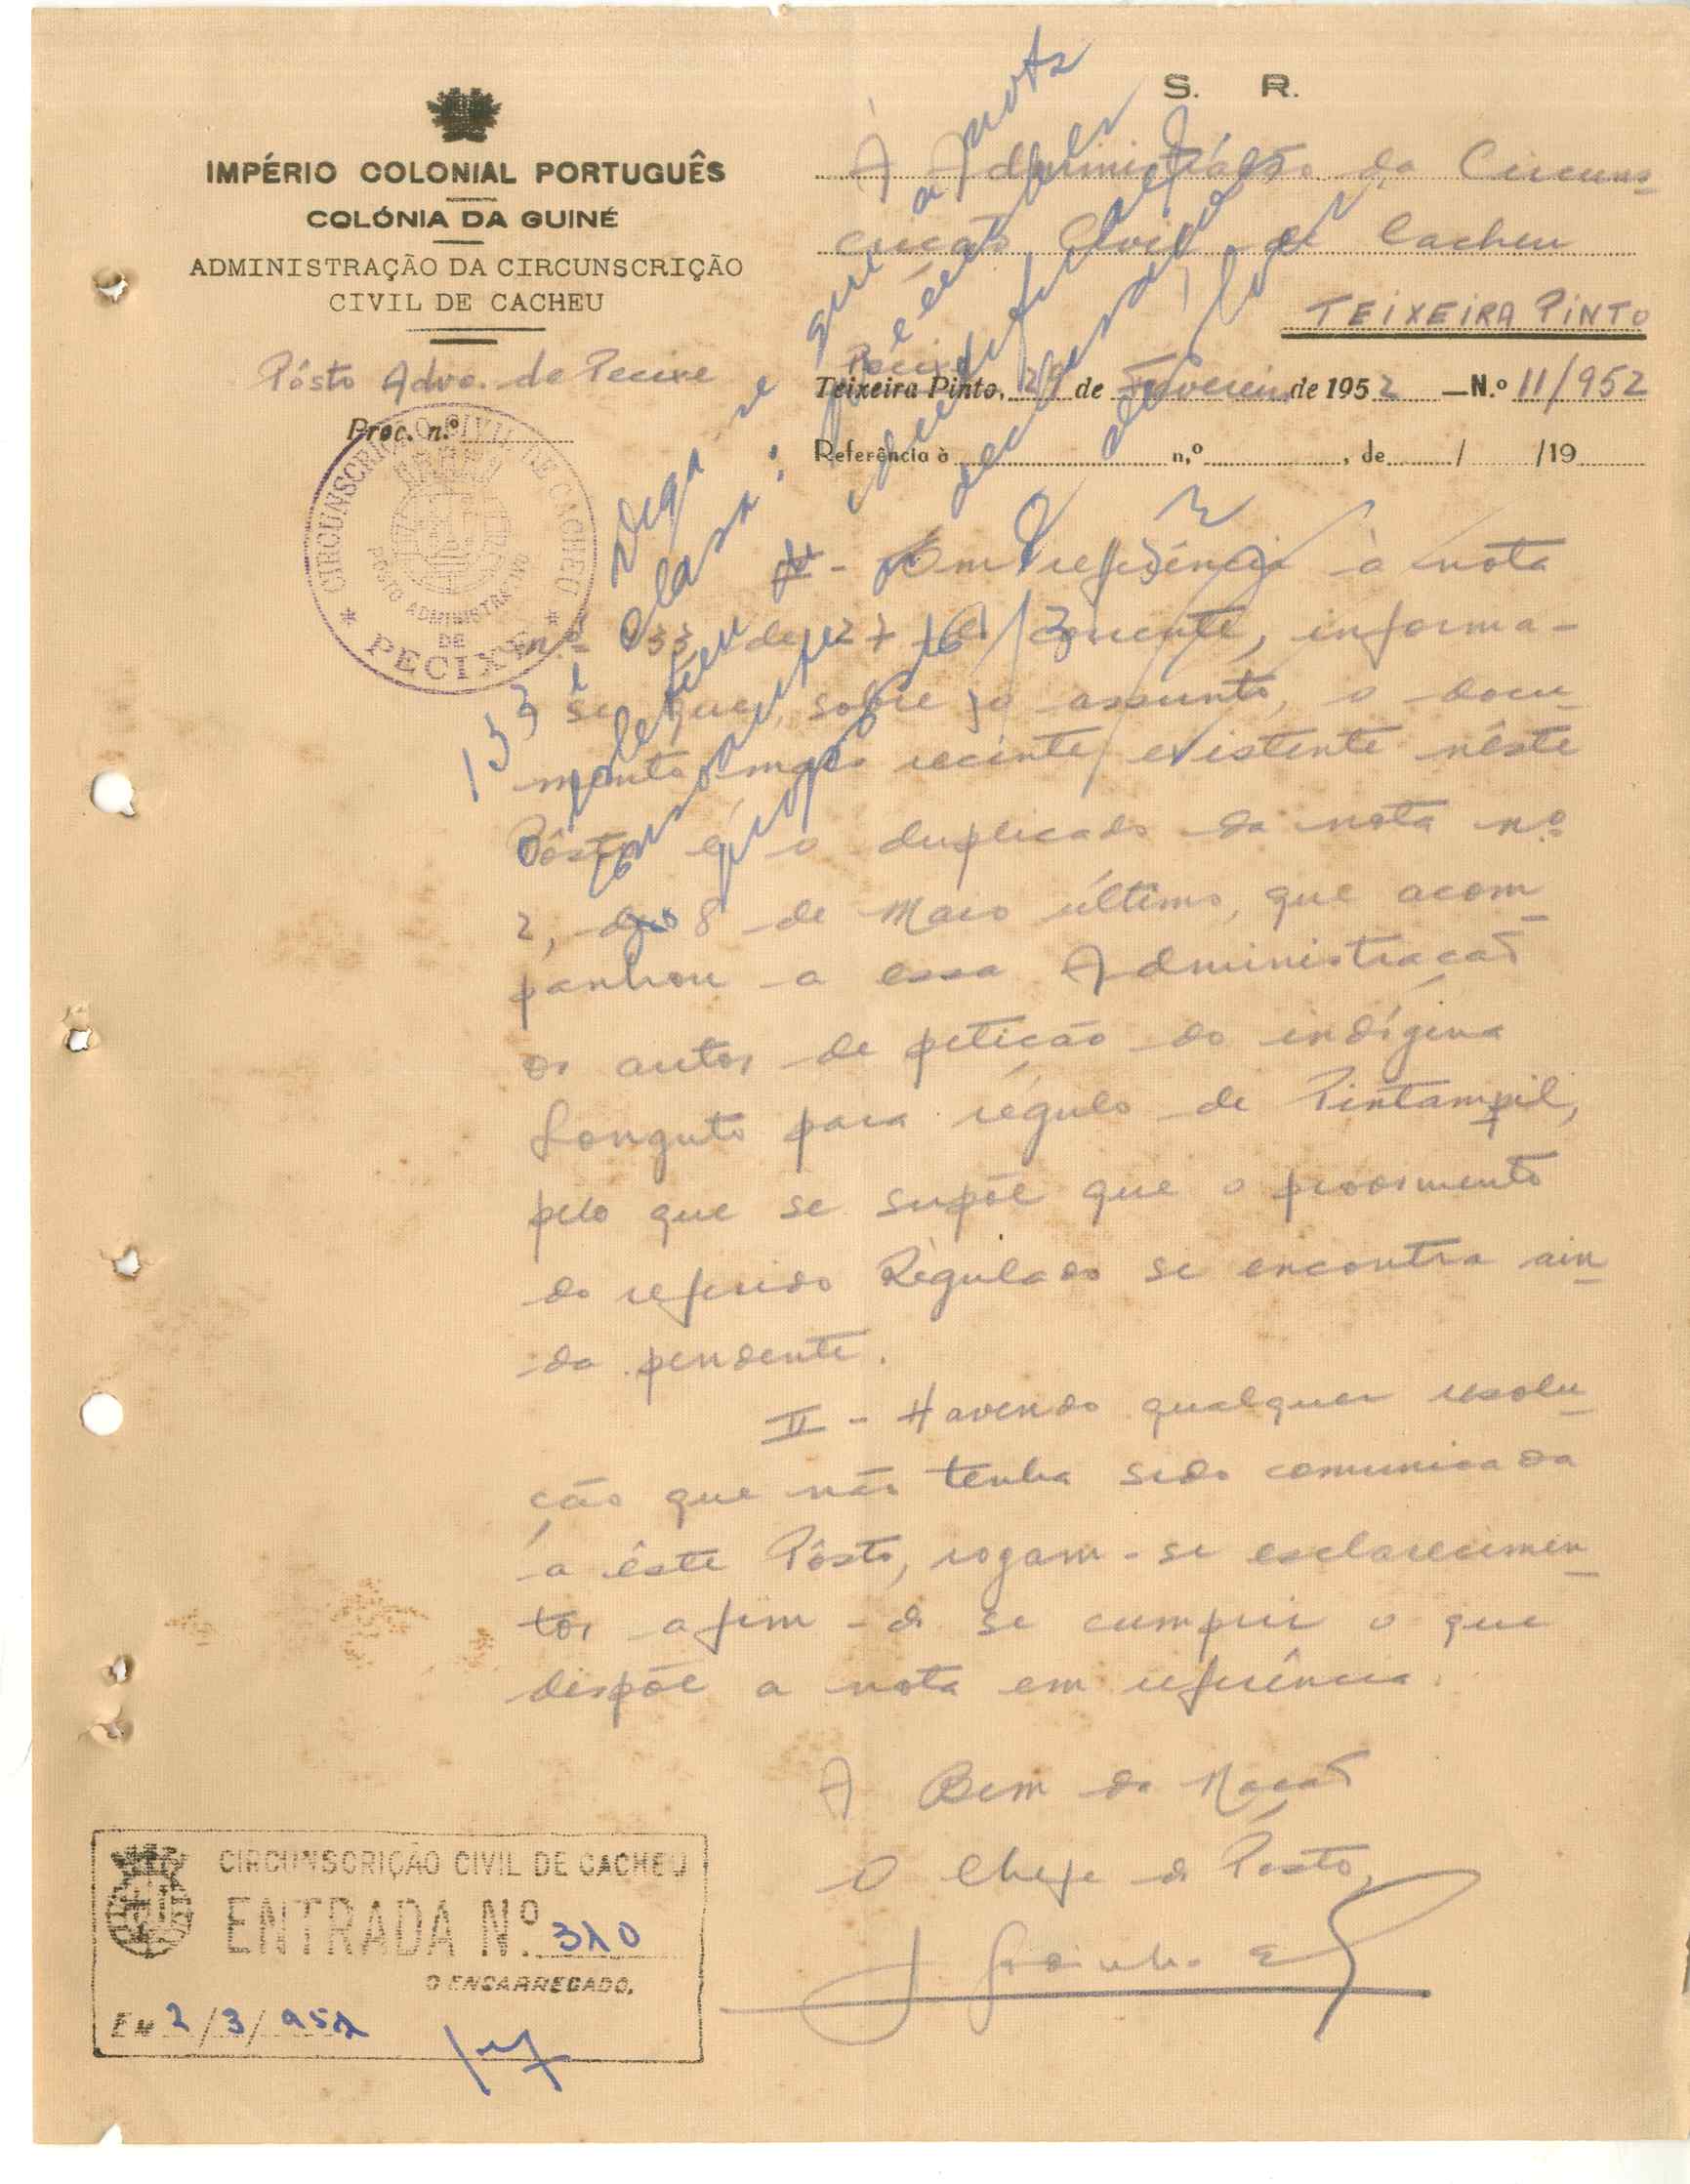 S. R.
IMPÉRIO COLONIAL PORTUGUÊS
COLÓNIA DA GUINÉ
ADMINISTRAÇÃO DA CIRCUNSCRIÇÃO
CIVIL DE CACHEU
Pôsto Advo. de Pecixe
Proc. n.º
CIRCUNSCRIÇÃO CIVIL DE CACHEU
POSTO ADMINISTRATIVO
DE
* PECIXE *
À Administração da Circuns-
crição Civil de Cacheu
TEIXEIRA PINTO
Pecixe
Teixeira Pinto, 29 de Fevereiro de 1952 — N.º 11/952
Referência à n.º , de / /19
Diga se que a nota
133 é clara:
- Em referência à nota
n.º 133 de 27 do corrente, informa-
se que, sobre o assunto, o docu-
mento mais recente existente nêste
Pôsto é o duplicado da nota n.º
2, de 8 de Maio último, que acom-
panhou a essa Administração
os autos de petição do indígena
Longuto para régulo de Pintampil,
pelo que se supõe que o provimento
do referido Regulado se encontra ain-
da pendente.
II - Havendo qualquer resolu-
ção que não tenha sido comunicada
a êste Pôsto, rogam-se esclarecimen-
tos afim de se cumprir o que
dispõe a nota em referência.
A Bem da Nação
O Chefe de Posto,
CIRCUNSCRIÇÃO CIVIL DE CACHEU
ENTRADA N.º 310
O ENCARREGADO,
EM 2/3/952